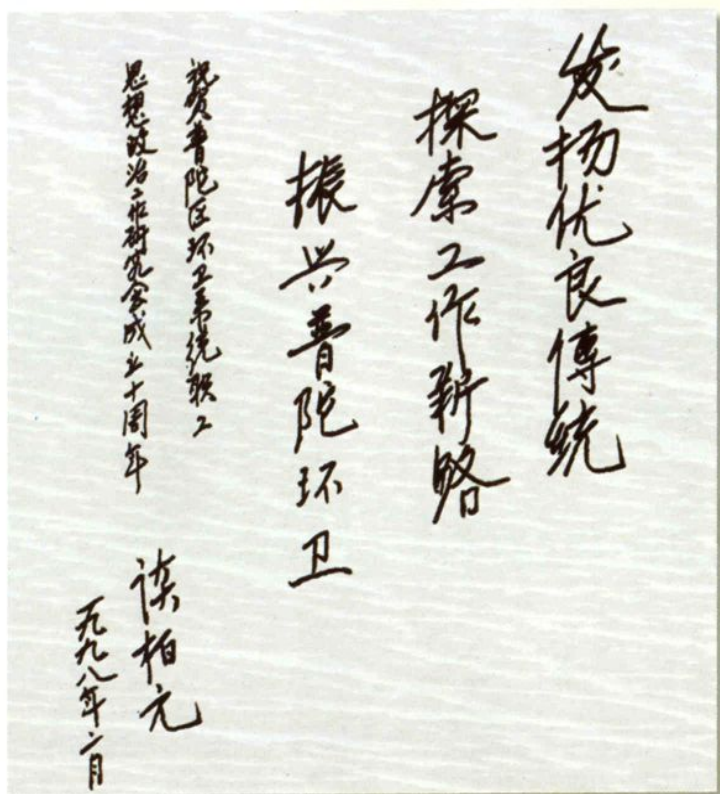 发扬优良傳统
探索工作新路
振兴普陀环卫
祝贺普陀区环卫系统职工
思想政治工作研究会成立十周年
谈柏元
一九九八年二月